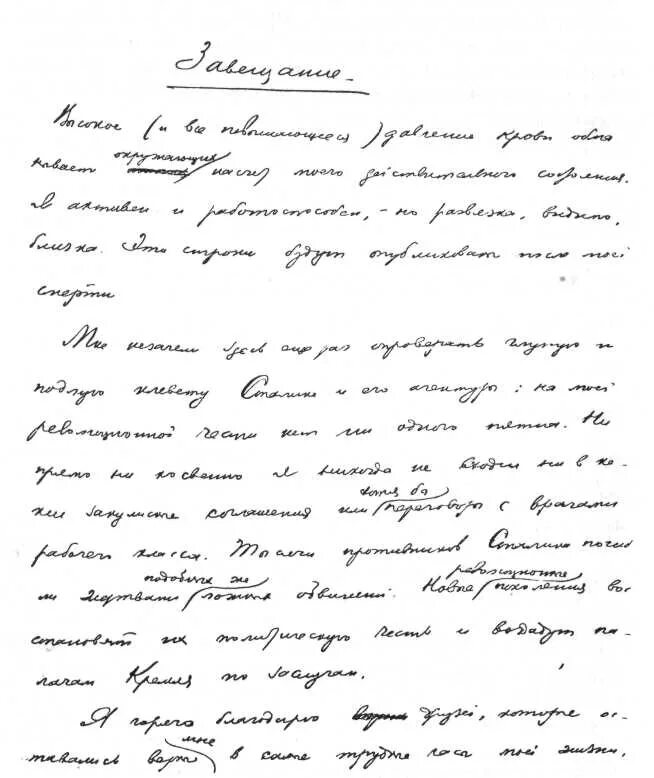 Завещание.
Высокое (и все повышающееся) давление крови обма
нывает окружающих насчет моего действительного состояния.
Я активен и работоспособен, – но развязка, видимо,
близка. Эти строки будут опубликованы после моей
смерти
Мне незачем здесь еще раз опровергать глупую и
подлую клевету Сталина и его агентуры: на моей
революционной чести нет ни одного пятна. Ни
прямо ни косвенно я никогда не входил ни в ка-
кие закулисные соглашения или хотя бы переговоры с врагами
рабочего класса. Тысячи противников Сталина погиб
ли жертвами подобных же ложных обвинений. Новые революционные поколения вос
становят их политическую честь и воздадут па-
лачам Кремля по заслугам.
Я горячо благодарю друзей, которые ос-
тавались верны мне в самые трудные часы моей жизни.